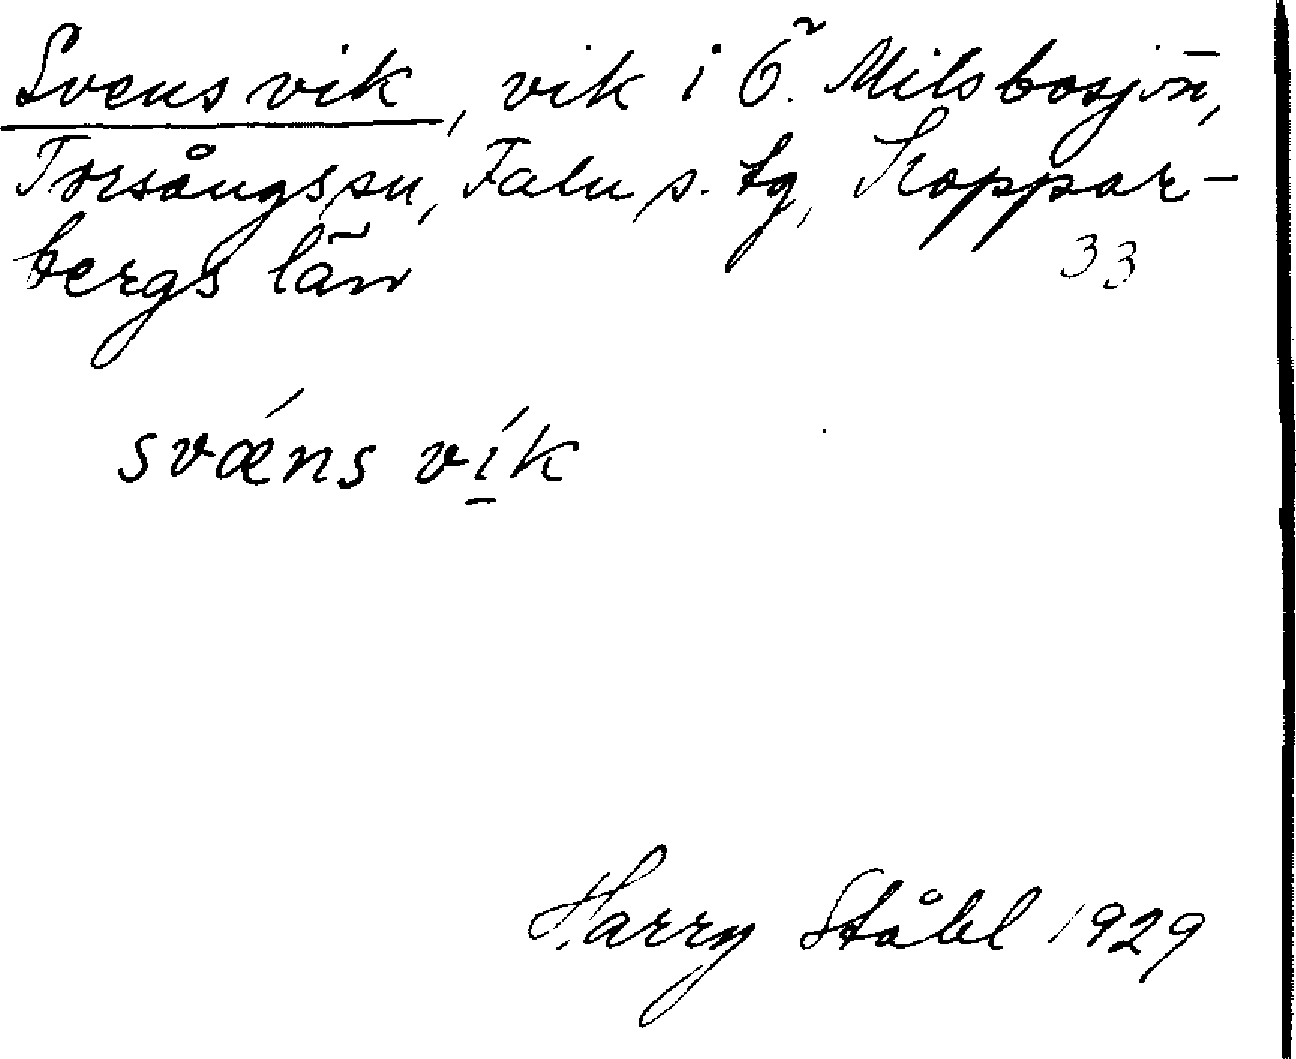 Svensvik, vik i Ö. Milsbosjön,
Torsångs sn, Falu s. tg, Koppar-
bergs län
33
svǽns vík
Harry Ståhl 1929